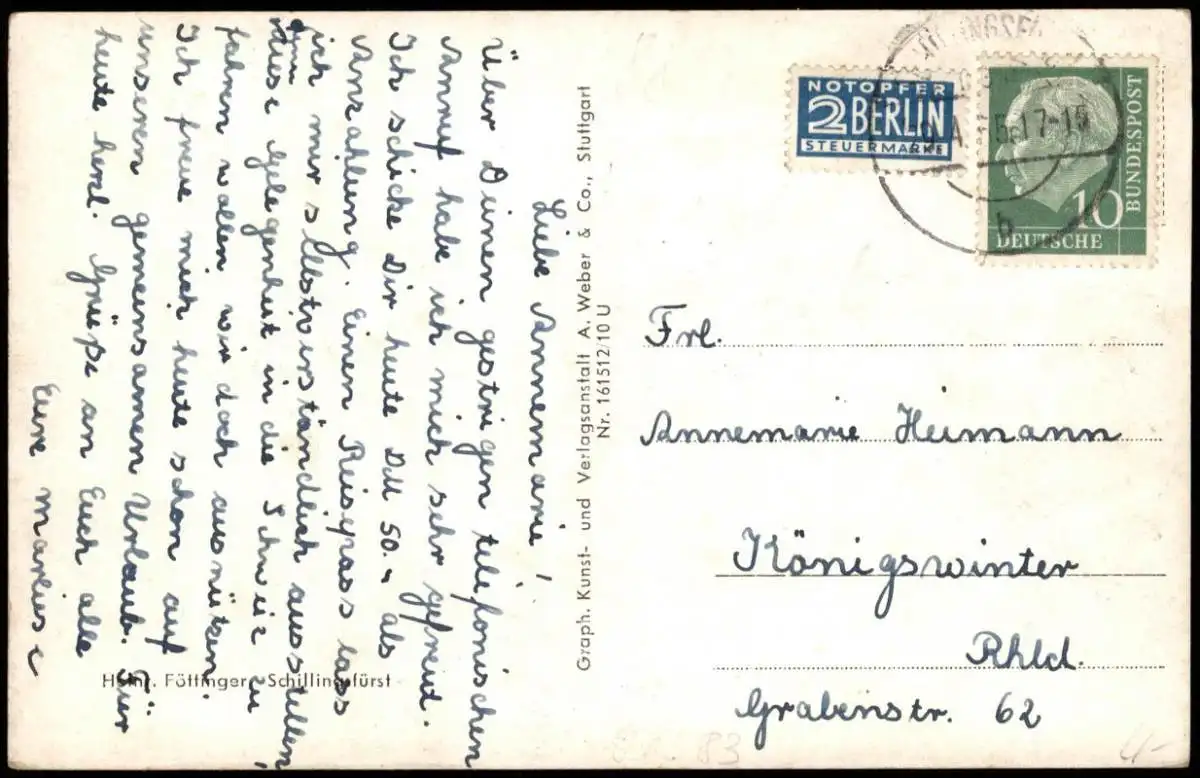 Liebe Annemarie!
Über Deinen gestrigen telefonischen
Anruf habe ich mich sehr gefreut.
Ich schicke Dir heute DM 50.- als
Anzahlung. Einen Reisepass lass
ich mir selbstverständlich ausstellen,
um diese Gelegenheit in die Schweiz zu
fahren wollen wir doch ausnützen.
Ich freue mich heute schon auf
unseren gemeinsamen Urlaub. Für
heute herzl. Grüße an Euch alle
Eure Marliese
Heinr. Föttinger, Schillingsfürst
Graph. Kunst- und Verlagsanstalt A. Weber & Co., Stuttgart
Nr. 161512/10 U
NOTOPFER
2 BERLIN
STEUERMARKE
10
DEUTSCHE
BUNDESPOST
b
Frl.
Annemarie Heimann
Königswinter
Rhld.
Grabenstr. 62
83
4-